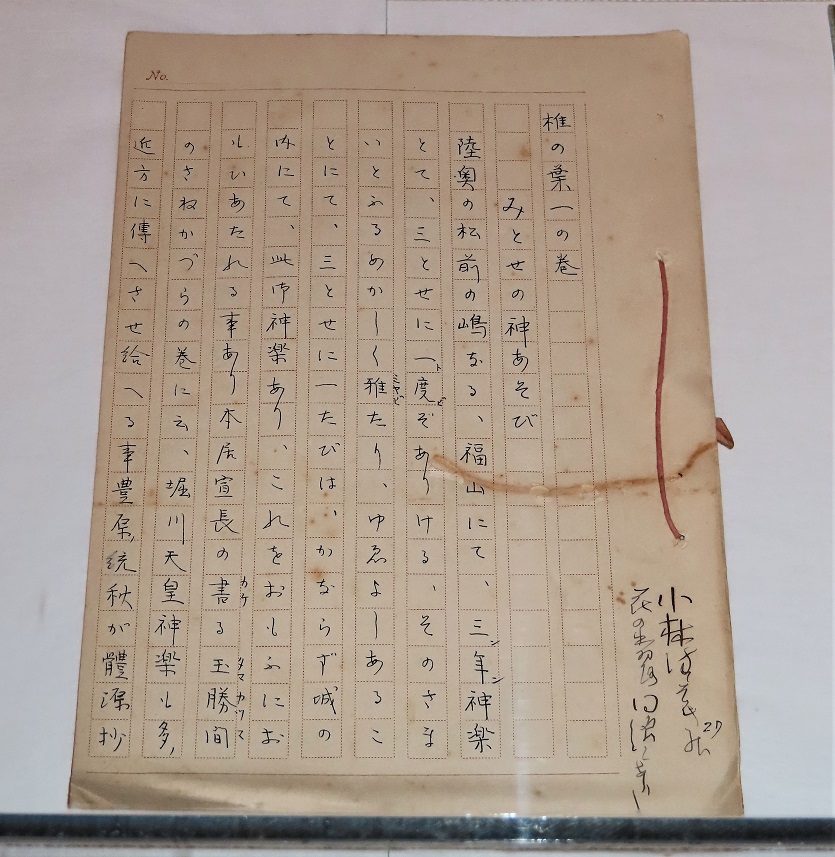 No.
椎の葉一の巻
みとせの神あそび
陸奥の松前の嶋なる、福山にて、三年神楽
とて、三とせに一度ぞありける、そのさま
いとふるめかしく雅たり、ゆゑよしあるこ
とにて、三とせに一たびは、かならず城の
内にて、此御神楽あり、これをおもふにお
もひあたれる事あり本居宣長の書る玉勝間
のさねかづらの巻に云、堀川天皇神楽も多
近方に傳へさせ給へる事豊原統秋が體源抄
小林